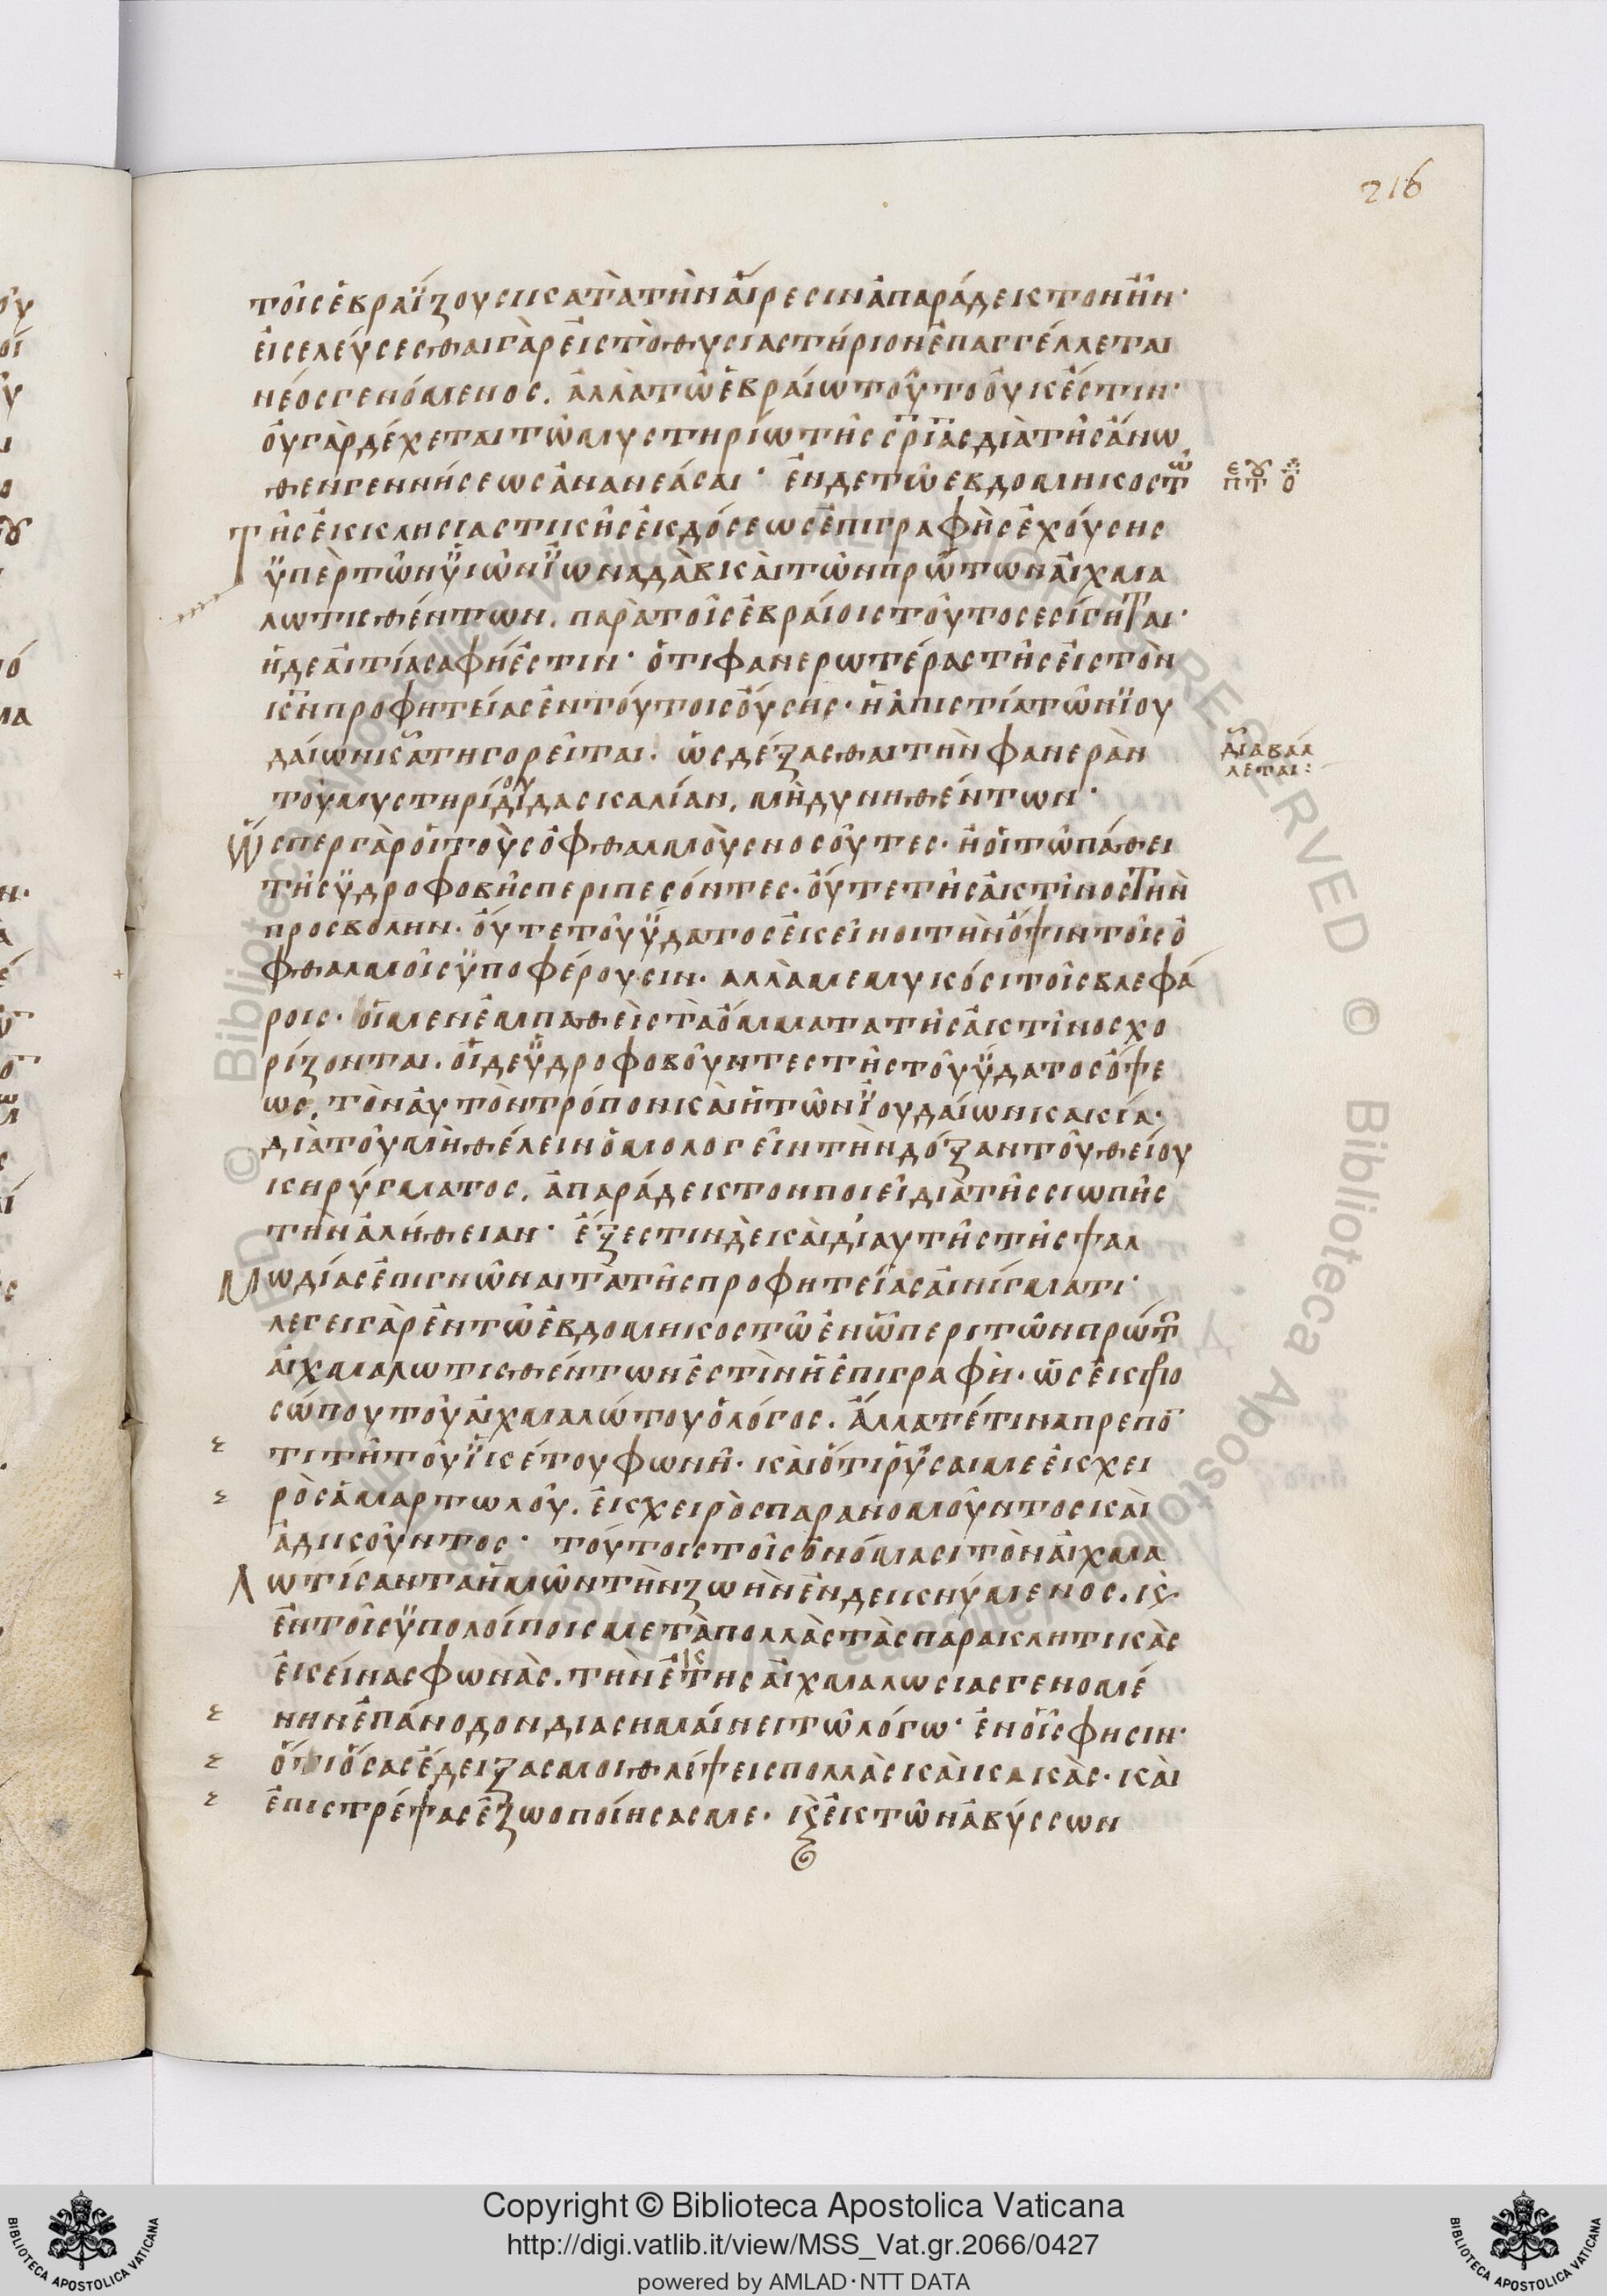 216
τοῖς ἑβραΐζουσι κατὰ τὴν αἵρεσιν ἀπαράδεκτον ἦν·
εἰσελεύσεσθαι γὰρ εἰς τὸ θυσιαστήριον ἐπαγγέλλεται
νέος γενόμενος. ἀλλὰ τῶ ἑβραίω τοῦτο οὐκ ἔστιν·
οὐ γὰρ δέχεται τῶ μυστηρίω τῆς σ̅ρ̅ι̅ας διὰ τῆς ἄνω
θεν γεννήσεως ἀνανεάσαι· ἐν δε τῶ εβδομηκοστῶ
τῆς ἐκκλησιαστικῆς ἐκδόσεως ἐπιγραφὴς ἐχούσης
ὑπὲρ τῶν ϋιῶν ϊωναδὰβ καὶ τῶν πρώτων αἰχμα
λωτισθέντων. παρὰ τοῖς ἑβραίοις τοῦτο σεσίγηται·
ἡ δε αἰτία σαφή ἐστιν· ὅτι φανερωτέρας τῆς εἰς τὸν
κ̅ν̅ προφητείας ἐν τούτοις οὔσης· ἡ ἀπιστία τῶν ϊου
δαίων κατηγορεῖται. ὡς δέξασθαι τὴν φανερὰν
τοῦ μυστηρίου διδασκαλίαν, μὴ δυνηθέντων·
ὥσπερ γὰρ οἱ τοὺς ὀφθαλμοὺς νοσοῦτες· ἢ οἱ τῶ πάθει
τῆς ϋδροφοβῆς περιπεσόντες· οὔτε τῆς ἀκτῖνος τὴν
προσβολην. οὔτε τοῦ ὕδατος ἐκεῖνοι τὴν ὄψιν τοῖς ὀ
φθαλμοῖς ϋποφέρουσιν· αλλὰ μεμυκόσι τοῖς βλεφά
ροις. οἱ μεν ἐμπαθεῖς τὰ ὄμματα τῆς ἀκτῖνος χο
ρίζονται. οἱ δε ϋδροφοβοῦντες τῆς τοῦ ὕδατος ὄψε
ως. τὸν αὐτὸν τρόπον καὶ ἡ τῶν ϊουδαίων κακία.
διὰ τοῦ μὴ θέλειν ὁμολογεῖν τὴν δόξαν τοῦ θείου
κηρύγματος. ἀπαράδεκτον ποιεῖ διὰ τῆς σιωπῆς
τὴν ἀλήθειαν· ἔξεστιν δὲ καὶ δι αυτῆς τῆς ψαλ
μωδίας ἐπιγνῶναι τὰ τῆς προφητείας αἰνίγματι·
λεγει γὰρ ἐν τῶ ἑβδομηκοστῶ ἐν ὧ περι τῶν πρώτ
αἰχμαλωτισθέντων ἐστὶν ἡ ἐπιγραφὴ. ὡς ἐκ προ
σώπου τοῦ αἰχμαλώτου ὁ λόγος. ἄλλα τέ τινα πρεπο
τι τῆ τοῦ ϊκέτου φωνῆ. καὶ ὅτι ῥῦσαι με ἐκ χει
ρὸς ἁμαρτωλοῦ. ἐκ χειρὸς παρανομοῦντος καὶ
ἀδικοῦντος· τούτοις τοῖς ὀνόμασι τὸν αἰχμα
λωτίσαντα ἡμῶν τὴν ζωὴν ἐνδεικνύμενος. κ̀
ἐν τοῖς ϋπολοίποις μετὰ πολλὰς τὰς παρακλητικὰς
ἐκείνας φωνὰς. τὴν ἐκ της αἰχμαλωσιας γενομέ
νην ἐπάνοδον διασημαίνει τῶ λόγω· ἐν οἷς φησιν·
ὅτι ὅσας ἔδειξας μοι θλίψεις πολλὰς καὶ κακὰς. καὶ
ἐπιστρέψας ἐζωοποίησας με. κ̀ ἐκ τῶν ἀβύσσων
διαβάλ
λεται:
Copyright © Biblioteca Apostolica Vaticana
http://digi.vatlib.it/view/MSS_Vat.gr.2066/0427
powered by AMLAD·NTT DATA
BIBLIOTECA APOSTOLICA VATICANA
BIBLIOTECA APOSTOLICA VATICANA